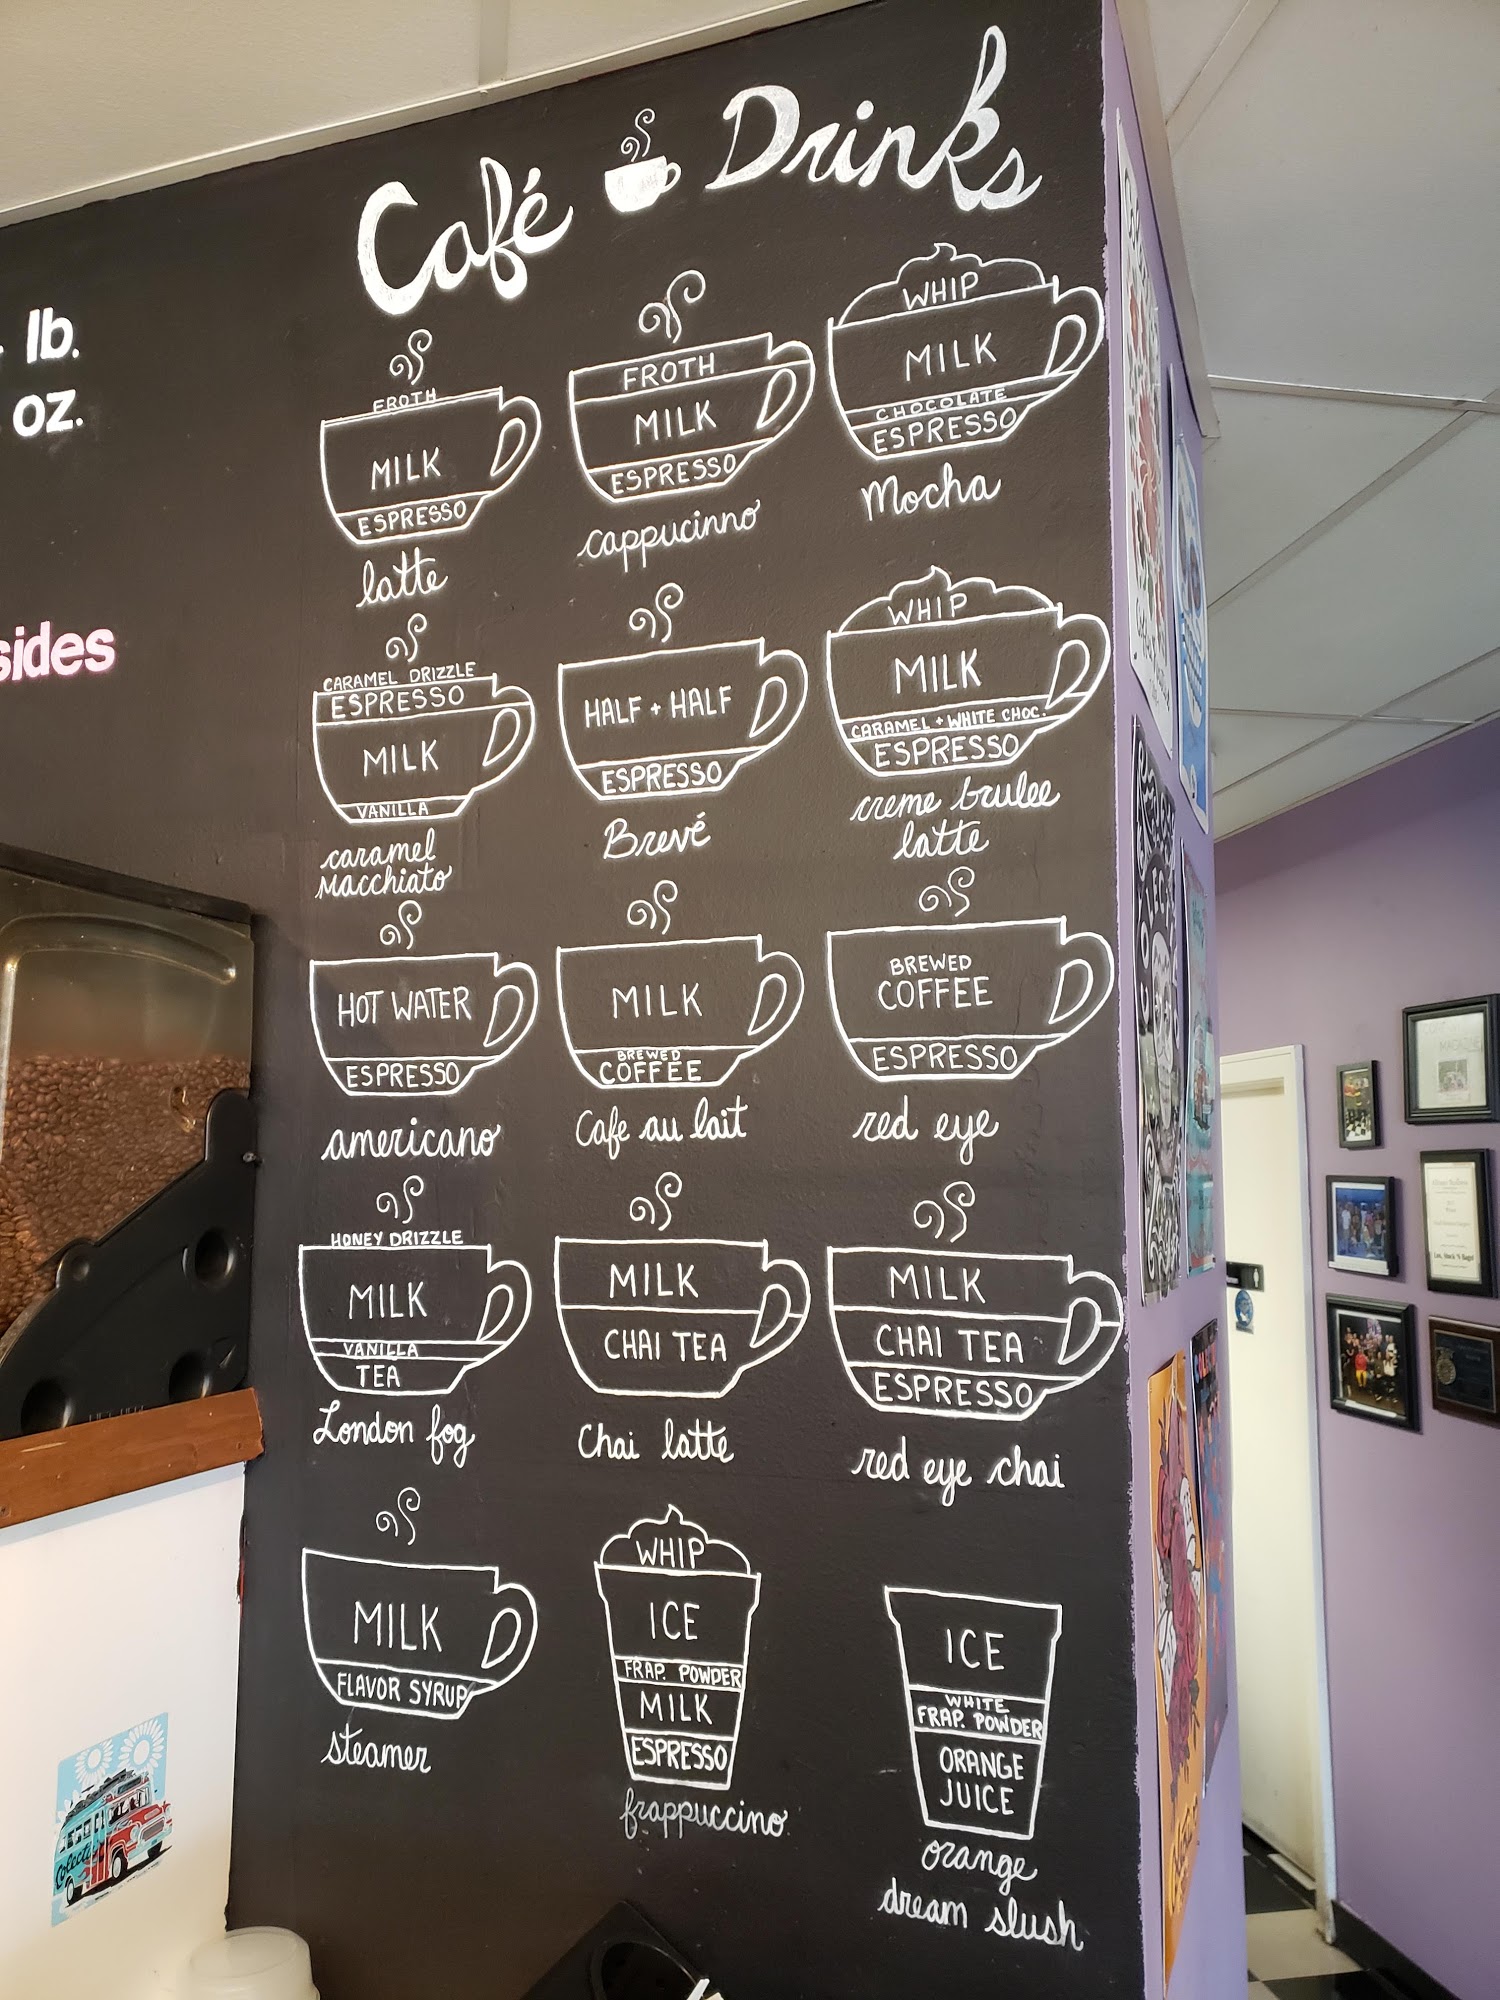 Café Drinks
lb.
oz.
sides
FROTH
MILK
ESPRESSO
latte
FROTH
MILK
ESPRESSO
cappucinno
WHIP
MILK
CHOCOLATE
ESPRESSO
Mocha
CARAMEL DRIZZLE
ESPRESSO
MILK
VANILLA
caramel
macchiato
HALF + HALF
ESPRESSO
Brevé
WHIP
MILK
CARAMEL + WHITE CHOC.
ESPRESSO
creme brulee
latte
HOT WATER
ESPRESSO
americano
MILK
BREWED
COFFEE
Cafe au lait
BREWED
COFFEE
ESPRESSO
red eye
HONEY DRIZZLE
MILK
VANILLA
TEA
London fog
MILK
CHAI TEA
Chai latte
MILK
CHAI TEA
ESPRESSO
red eye chai
MILK
FLAVOR SYRUP
steamer
WHIP
ICE
FRAP. POWDER
MILK
ESPRESSO
frappuccino
ICE
WHITE
FRAP. POWDER
ORANGE
JUICE
orange
dream slush